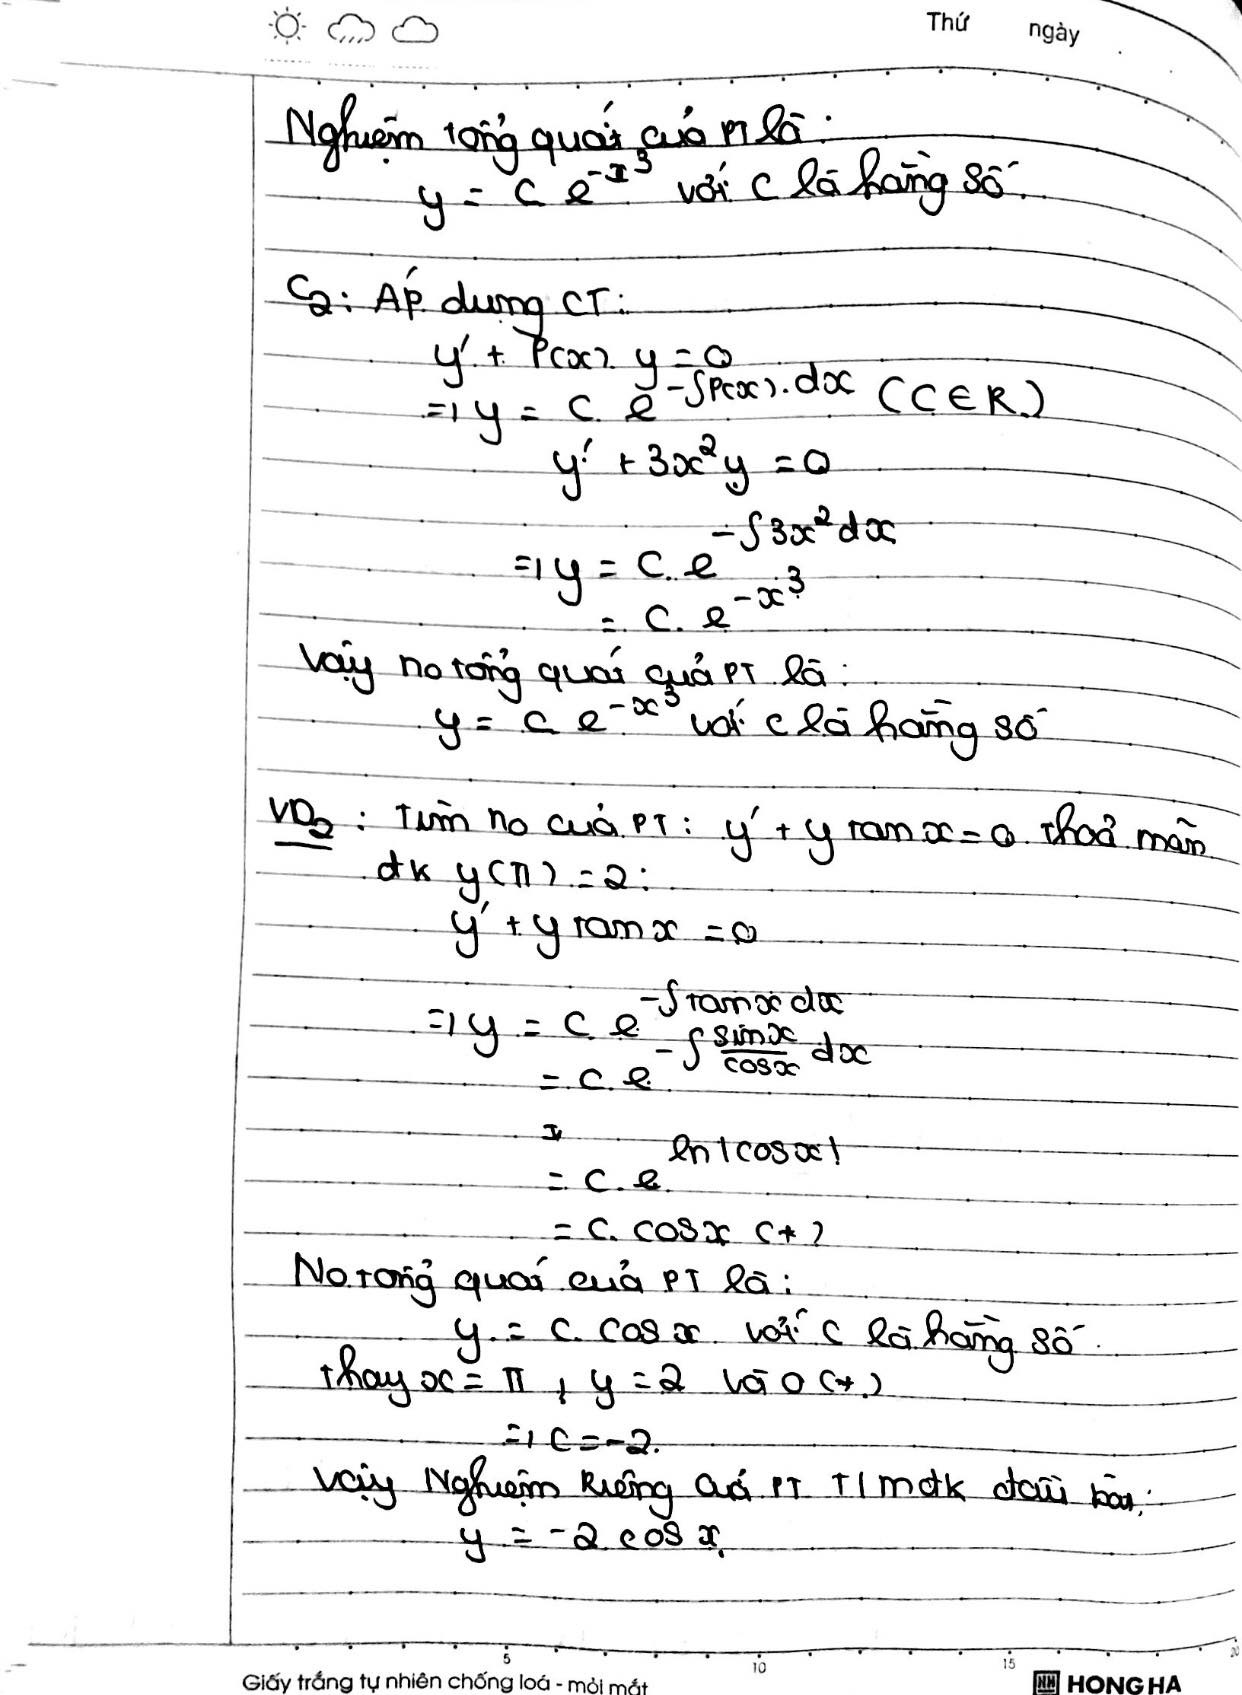 Thứ ngày
Nghiệm tổng quát của PT là:
y = C.e^{-x^3} với C là hằng số.
C2: Áp dụng CT:
y' + P(x).y = 0
=> y = C.e^{-∫P(x).dx} (C ∈ R)
y' + 3x^2y = 0
=> y = C.e^{-∫3x^2dx}
= C.e^{-x^3}
Vậy no tổng quát quả PT là:
y = C.e^{-x^3} với C là hằng số
VD2: Tìm no của PT: y' + y tan x = 0 thoả mãn
đk y(π) = 2:
y' + y tan x = 0
=> y = C.e^{-∫tan x dx}
= C.e^{-∫\frac{sin x}{cos x} dx}
= C.e^{ln|cos x|}
= C.cos x (*)
No tổng quát của PT là:
y = C.cos x với C là hằng số.
Thay x = π, y = 2 vào (*)
=> C = -2.
Vậy Nghiệm Riêng củả PT T/m đk đầu bài:
y = -2.cos x.
5 10 15 20
Giấy trắng tự nhiên chống loá - mỏi mắt
HH HONG HA